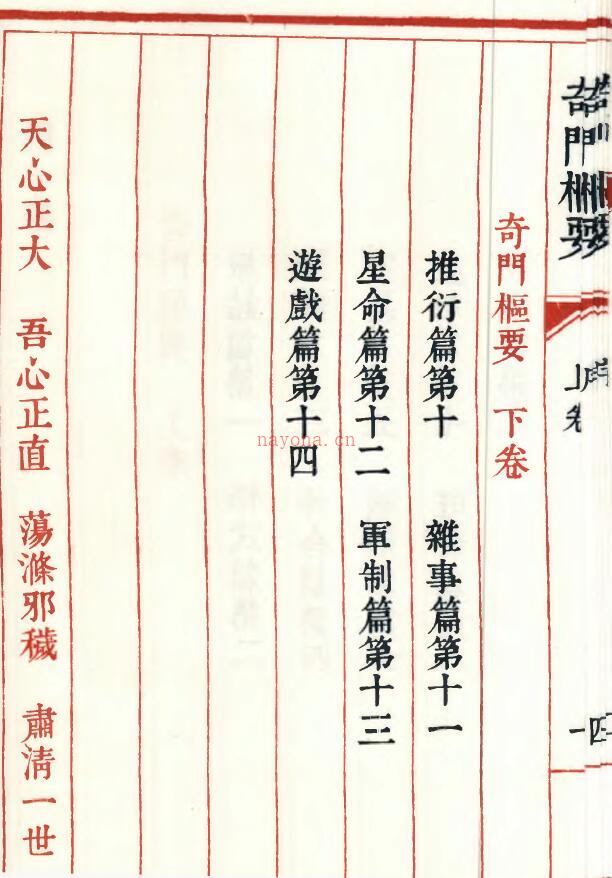 奇門樞要
奇門樞要 下卷
推衍篇第十 雜事篇第十一
星命篇第十二 軍制篇第十三
遊戲篇第十四
天心正大 吾心正直 蕩滌邪穢 肅清一世
nayona.cn